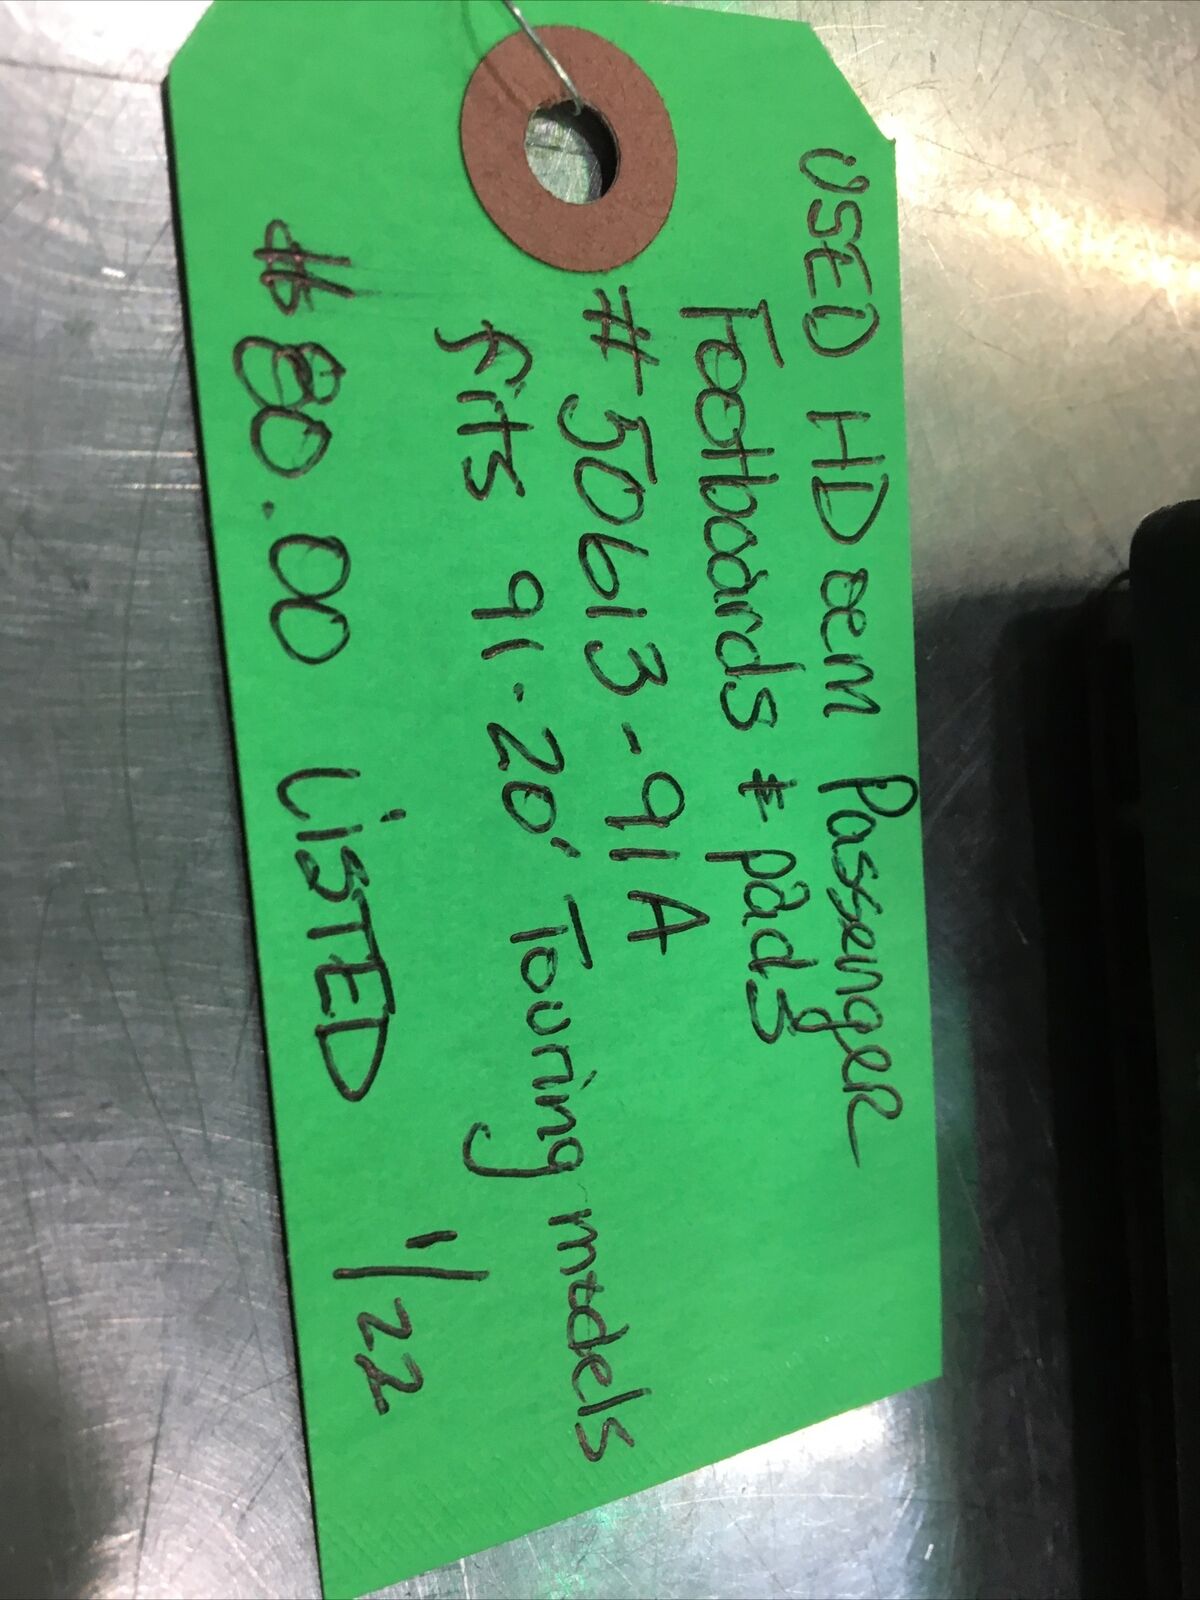 USED HD oem Passenger
Footboards & pads
#50613-91A
fits 91-20' Touring models
$80.00 LiSTED 1/22